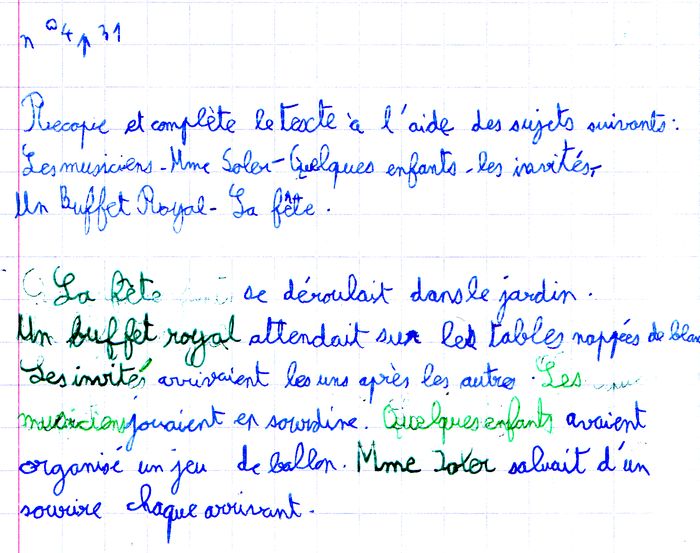 n° 4 p 31
Recopie et complète le texte à l'aide des sujets suivants:
Les musiciens - Mme Soler - Quelques enfants - les invités -
Un Buffet Royal - La fête.
La fête se déroulait dans le jardin.
Un buffet royal attendait sur les tables nappées de blan
Les invités arrivaient les uns après les autres. Les
musiciens jouaient en sourdine. Quelques enfants avaient
organisé un jeu de ballon. Mme Soler saluait d'un
sourire chaque arrivant.